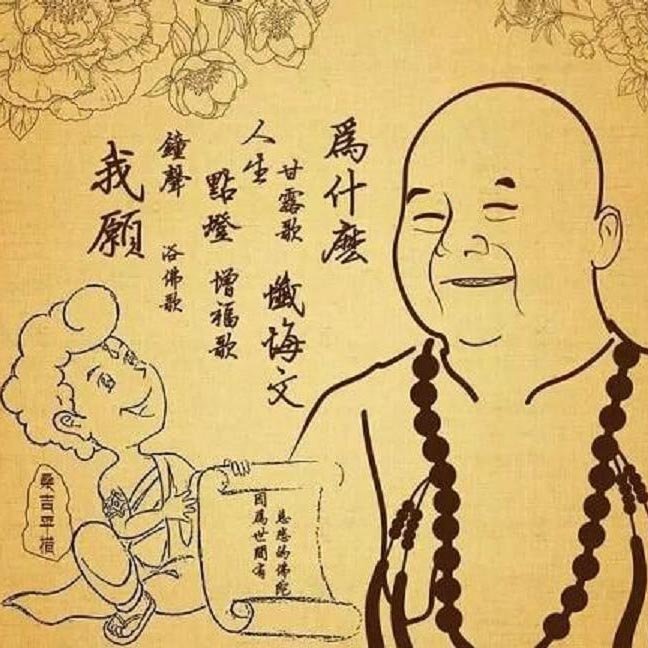 爲什麽
甘露歌
懺悔文
人生
點燈
增福歌
鐘聲
浴佛歌
我願
慈悲的佛陀
因爲世間有
桑吉平措